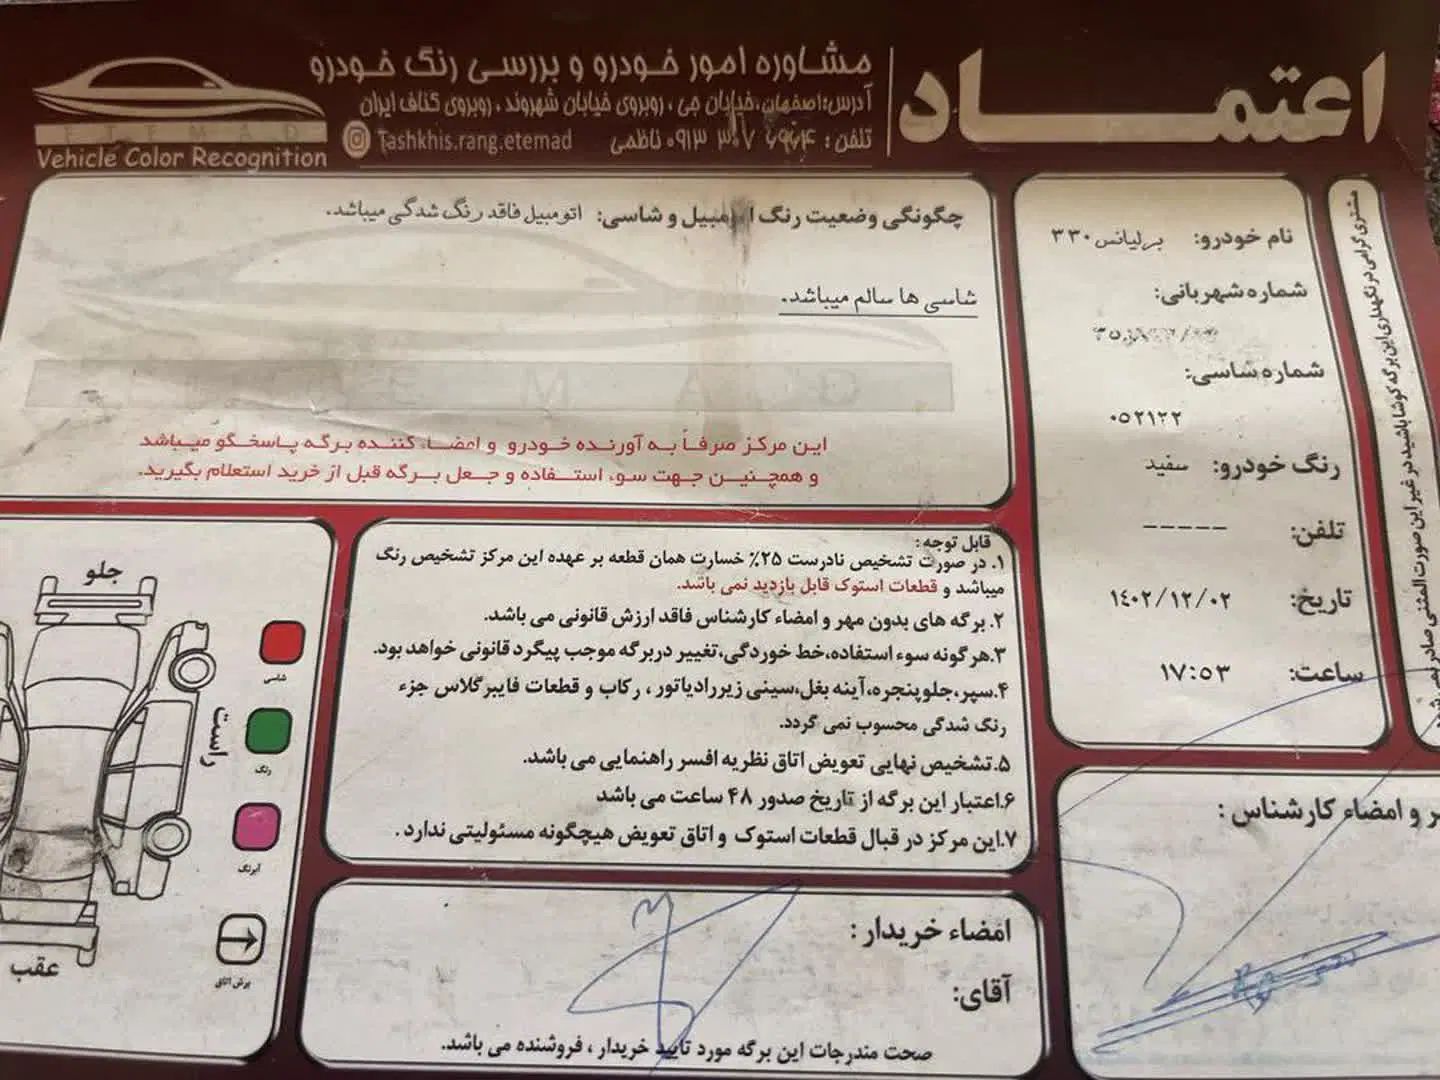 اعتمـــــاد
مشاوره امور خودرو و بررسی رنگ خودرو
آدرس: اصفهان، خیابان جی، روبروی خیابان شهروند، روبروی کناف ایران
تلفن: ۰۹۱۳ ناظمی
Tashkhis.rang.etemad
ETEMAD
Vehicle Color Recognition
مشتری گرامی در نگهداری این برگه کوشا باشید در غیر این صورت المثنی صادر نمی شود
نام خودرو: برلیانس ۳۳۰
شماره شهربانی:
شماره شاسی:
۰۵۲۱۲۲
رنگ خودرو: سفید
تلفن: -----
تاریخ: ۱٤۰۲/۱۲/۰۲
ساعت: ۱۷:۵۳
چگونگی وضعیت رنگ اتومبیل و شاسی: اتومبیل فاقد رنگ شدگی میباشد.
شاسی ها سالم میباشد.
این مرکز صرفاً به آورنده خودرو و امضاء کننده برگه پاسخگو میباشد
و همچنین جهت سوء استفاده و جعل برگه قبل از خرید استعلام بگیرید.
قابل توجه:
۱. در صورت تشخیص نادرست ۲۵٪ خسارت همان قطعه بر عهده این مرکز تشخیص رنگ
میباشد و قطعات استوک قابل بازدید نمی باشد.
۲. برگه های بدون مهر و امضاء کارشناس فاقد ارزش قانونی می باشد.
۳.هرگونه سوء استفاده،خط خوردگی،تغییر دربرگه موجب پیگرد قانونی خواهد بود.
۴.سپر،جلوپنجره،آینه بغل،سینی زیررادیاتور، رکاب و قطعات فایبرگلاس جزء
رنگ شدگی محسوب نمی گردد.
۵.تشخیص نهایی تعویض اتاق نظریه افسر راهنمایی می باشد.
۶.اعتبار این برگه از تاریخ صدور ۴۸ ساعت می باشد
۷.این مرکز در قبال قطعات استوک و اتاق تعویض هیچگونه مسئولیتی ندارد.
جلو
راست
عقب
شاسی
رنگ
آبرنگ
برش اتاق
و امضاء کارشناس:
امضاء خریدار:
آقای:
صحت مندرجات این برگه مورد تایید خریدار، فروشنده می باشد.